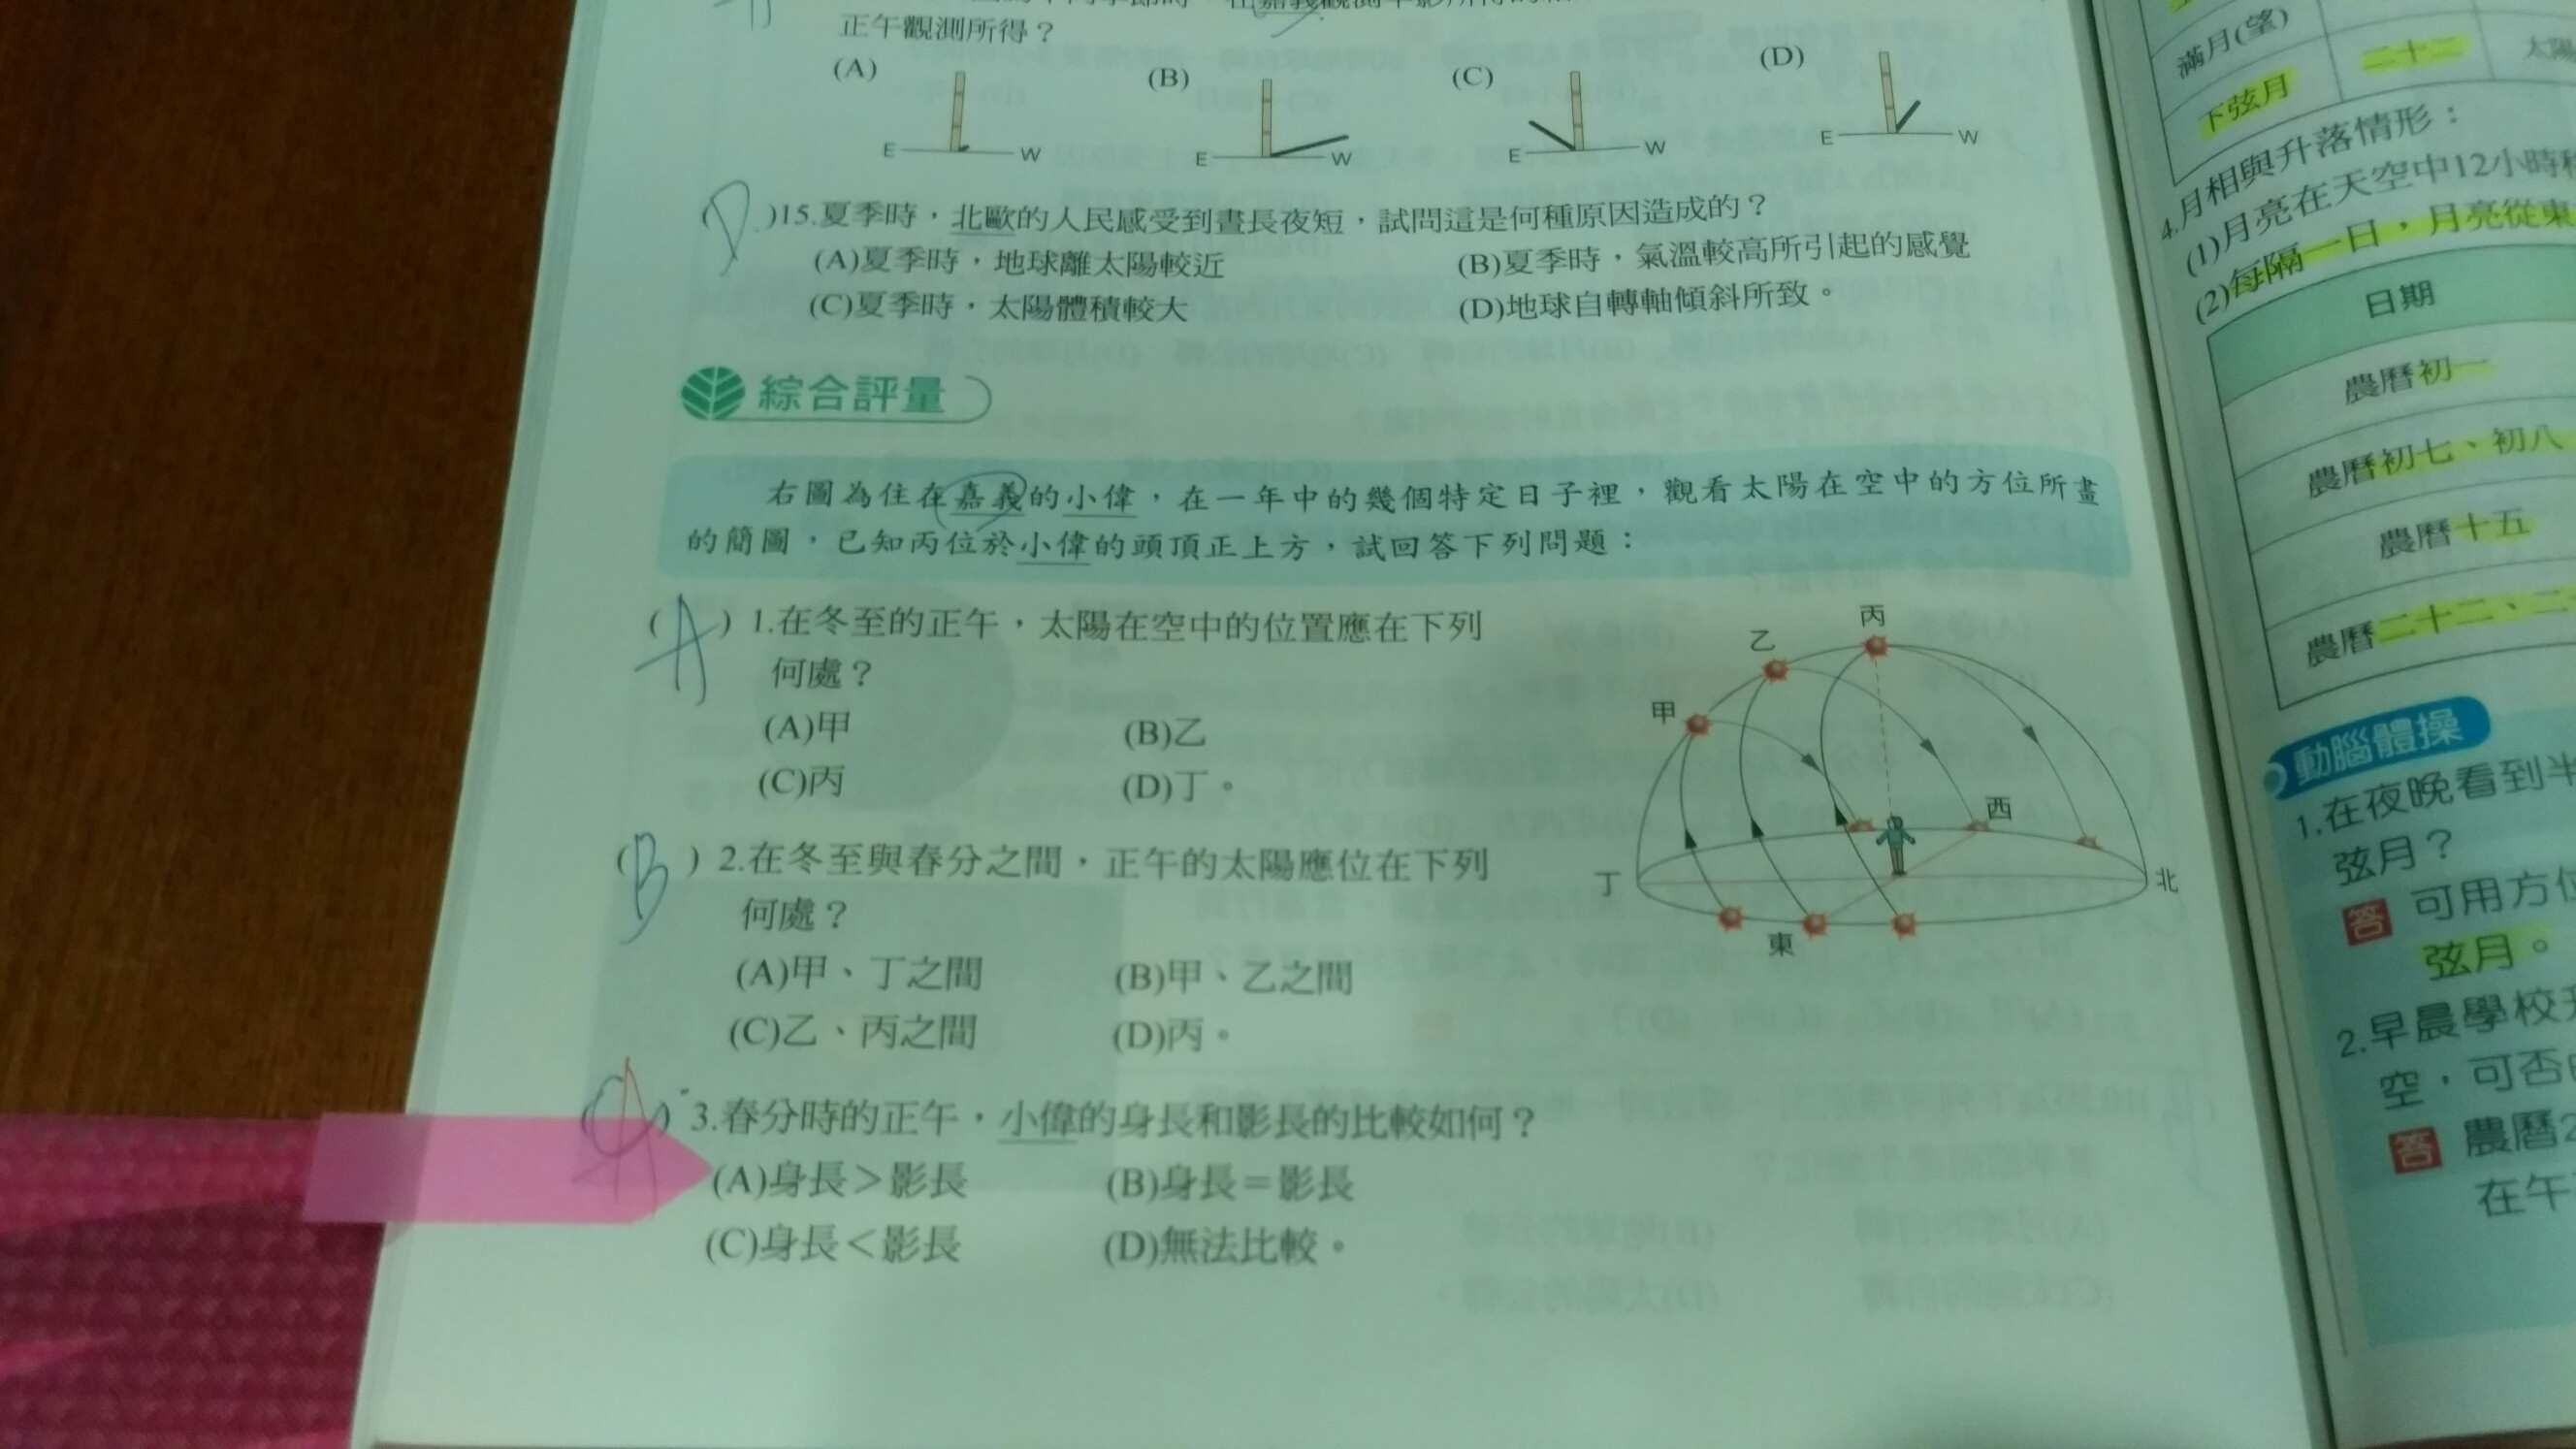 正午觀測所得？
(A) (B) (C) (D)
E W E W E W E W
(D)15.夏季時，北歐的人民感受到晝長夜短，試問這是何種原因造成的？
(A)夏季時，地球離太陽較近 (B)夏季時，氣溫較高所引起的感覺
(C)夏季時，太陽體積較大 (D)地球自轉軸傾斜所致。
綜合評量
右圖為住在嘉義的小偉，在一年中的幾個特定日子裡，觀看太陽在空中的方位所畫
的簡圖，已知丙位於小偉的頭頂正上方，試回答下列問題：
(A) 1.在冬至的正午，太陽在空中的位置應在下列
何處？
(A)甲 (B)乙
(C)丙 (D)丁。
(B) 2.在冬至與春分之間，正午的太陽應位在下列
何處？
(A)甲、丁之間 (B)甲、乙之間
(C)乙、丙之間 (D)丙。
(A) 3.春分時的正午，小偉的身長和影長的比較如何？
(A)身長＞影長 (B)身長＝影長
(C)身長＜影長 (D)無法比較。
丙
乙
甲
西
丁 北
東
滿月(望) 二十二 太陽
下弦月
4.月相與升落情形：
(1)月亮在天空中12小時
(2)每隔一日，月亮從東
日期
農曆初一
農曆初七、初八
農曆十五
農曆二十二、二
動腦體操
1.在夜晚看到半
弦月？
答 可用方位
弦月。
2.早晨學校升
空，可否
答 農曆2
在午